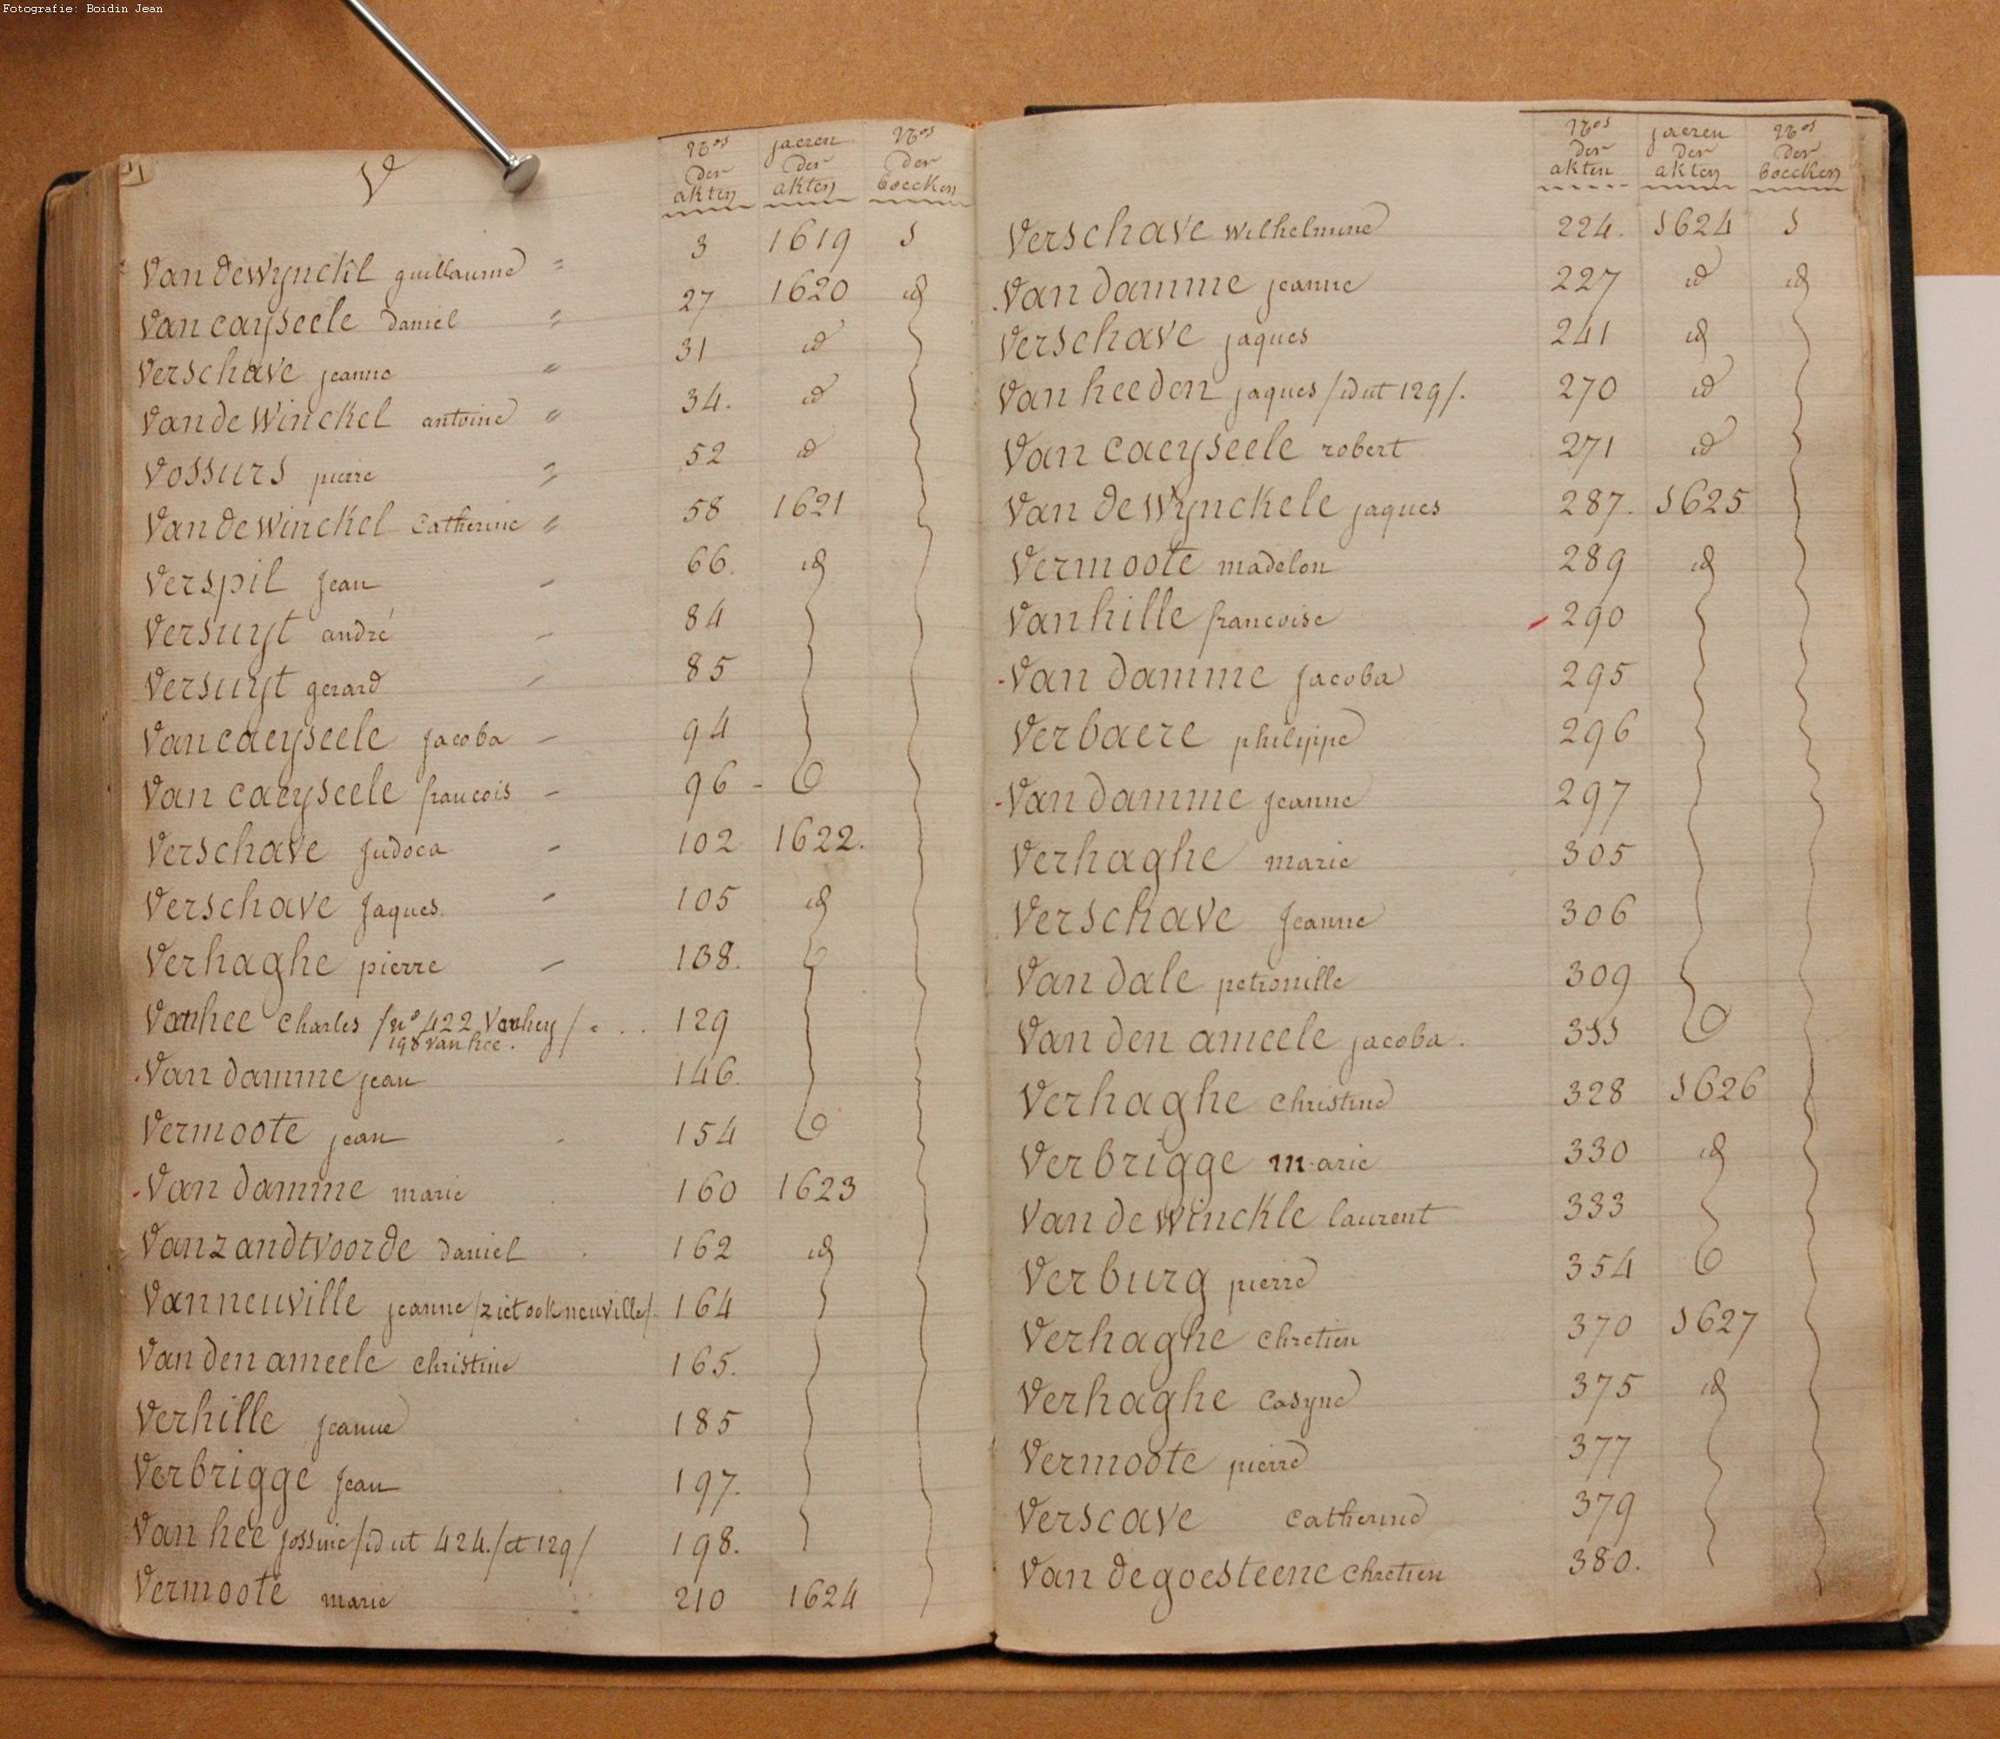 Fotografie: Boidin Jean
V
Nos der akten jaeren der akten Nos der boecken
Van dewynckil guillaume " 3 1619 1
Van cayseele daniel " 27 1620 id
Verschave jeanne " 31 id
Van de Winckel antoine " 34. id
Vossurs pierre " 52 id
Van de Winckel Catherine " 58 1621
Verspil Jean - 66. id
Versuyt andré - 84
Versuyt gerard - 85
Van caeyseele Jacoba - 94
Van caeyseele francois - 96 -
Verschave Judoca - 102 1622.
Verschave Jaques. - 105 id
Verhaghe pierre - 108.
Vanhee Charles /no 422 Vanhey/ . . . 129
198 vanhee.
Van damme jean 146.
Vermoote jean 154
Van damme marie 160 1623
Van zandtvoorde daniel 162 id
Van neuville jeanne /ziet ook neuville/. 164
Van den ameele christine 165.
Verhille jeanne 185
Verbrigge Jean 197.
Van hee Jossine /id ut 424./et 129/ 198.
Vermoote marie 210 1624
Nos der akten jaeren der akten Nos der boecken
Verschave Wilhelmine 224. 1624 1
Van damme jeanne 227 id id
Verschave jaques 241 id
Van heeden jaques /id ut 129/. 270 id
Van caeyseele robert 271 id
Van de Wynckele jaques 287. 1625
Vermoote madelon 289 id
Van hille francoise 290
Van damme Jacoba 295
Verbaere philippe 296
Van damme Jeanne 297
Verhaghe marie 305
Verschave Jeanne 306
Van dale petronille 309
Van den ameele jacoba. 311
Verhaghe Christine 328 1626
Verbrigge marie 330 id
Van de winckle laurent 333
Verburg pierre 354
Verhaghe chretien 370 1627
Verhaghe Casyne 375 id
Vermoote pierre 377
Verscave catherine 379
Van degoesteene chretien 380.